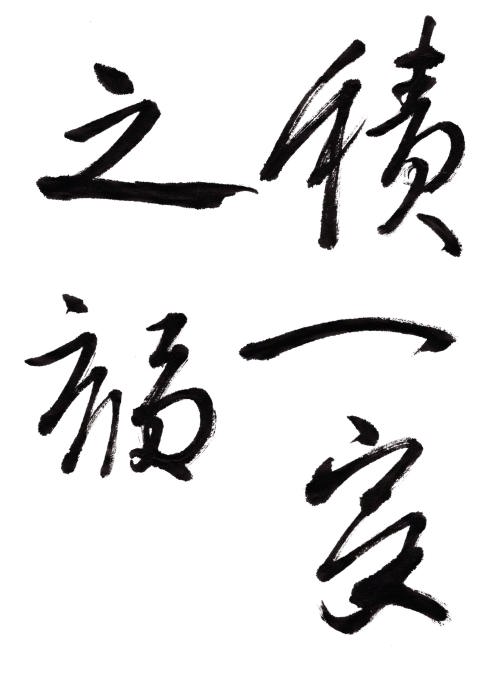 積一
之福